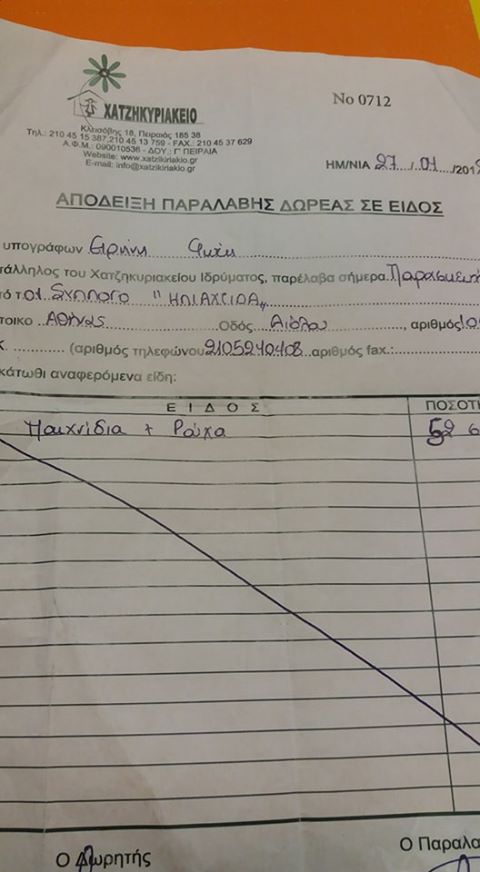 ΧΑΤΖΗΚΥΡΙΑΚΕΙΟ
Νο 0712
Κλεισόβης 18, Πειραιάς 185 38
Τηλ.: 210 45 15 387,210 45 13 759 - FAX.: 210 45 37 629
Α.Φ.Μ.: 090010536 - ΔΟΥ.: Γ' ΠΕΙΡΑΙΑ
Website: www.xatzikiriakio.gr
E-mail: info@xatzikiriakio.gr
ΗΜ/ΝΙΑ 27/01/201
ΑΠΟΔΕΙΞΗ ΠΑΡΑΛΑΒΗΣ ΔΩΡΕΑΣ ΣΕ ΕΙΔΟΣ
υπογράφων Ειρήνη
άλληλος του Χατζηκυριακείου Ιδρύματος, παρέλαβα σήμερα Παρασκευή
Σύλλογο "ΗΛΙΑΧΤΙΔΑ"
τοικο Αθήνας Οδός Αιόλου, αριθμός
(αριθμός τηλεφώνου 2105240408 αριθμός fax.:
κάτωθι αναφερόμενα είδη:
ΕΙΔΟΣ ΠΟΣΟΤ
Παιχνίδια + Ρούχα 52
Ο Δωρητής Ο Παραλα